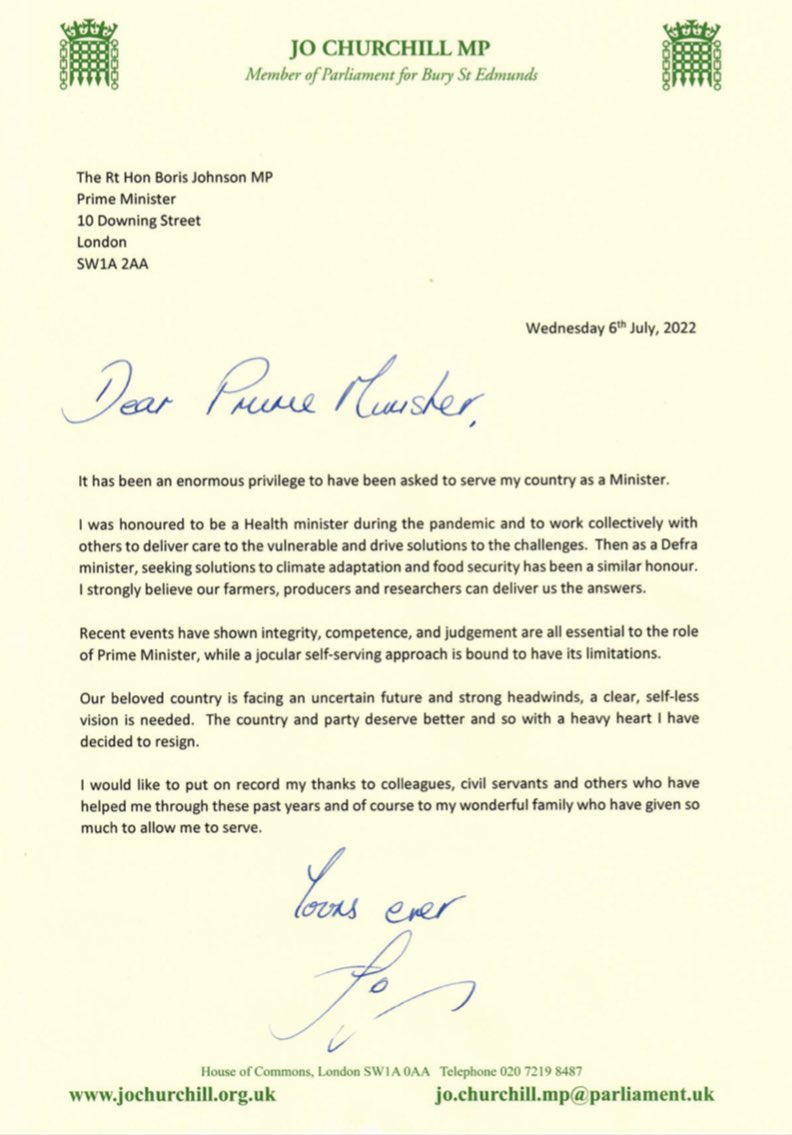 JO CHURCHILL MP
Member of Parliament for Bury St Edmunds
The Rt Hon Boris Johnson MP
Prime Minister
10 Downing Street
London
SW1A 2AA
Wednesday 6th July, 2022
Dear Prime Minister,
It has been an enormous privilege to have been asked to serve my country as a Minister.
I was honoured to be a Health minister during the pandemic and to work collectively with
others to deliver care to the vulnerable and drive solutions to the challenges.  Then as a Defra
minister, seeking solutions to climate adaptation and food security has been a similar honour.
I strongly believe our farmers, producers and researchers can deliver us the answers.
Recent events have shown integrity, competence, and judgement are all essential to the role
of Prime Minister, while a jocular self-serving approach is bound to have its limitations.
Our beloved country is facing an uncertain future and strong headwinds, a clear, self-less
vision is needed.  The country and party deserve better and so with a heavy heart I have
decided to resign.
I would like to put on record my thanks to colleagues, civil servants and others who have
helped me through these past years and of course to my wonderful family who have given so
much to allow me to serve.
Yours ever
Jo
House of Commons, London SW1A 0AA   Telephone 020 7219 8487
www.jochurchill.org.uk jo.churchill.mp@parliament.uk